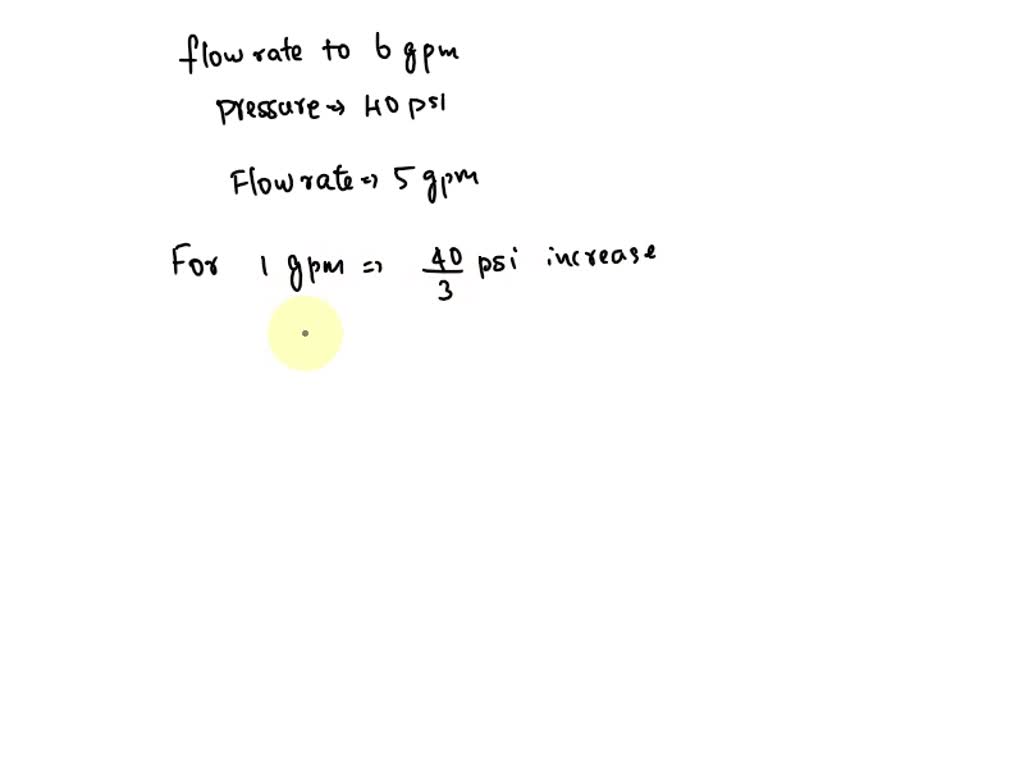 flow rate to 6 gpm
Pressure → 40 psi
Flow rate ⇒ 5 gpm
For 1 gpm ⇒ 40/3 psi increase